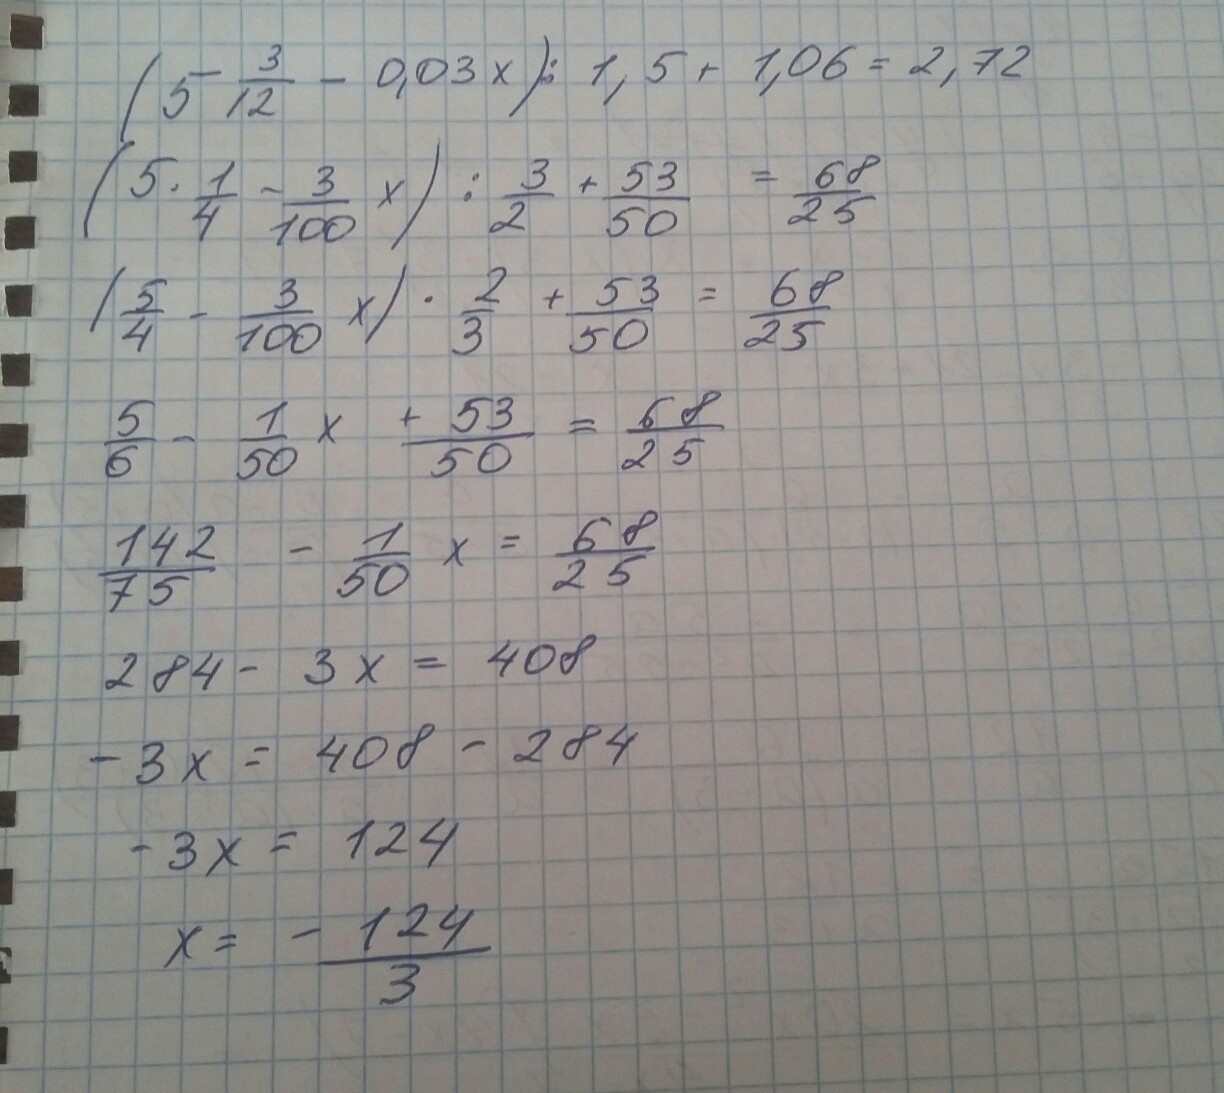 (5 3/12 - 0,03x) : 1,5 + 1,06 = 2,72
(5 · 1/4 - 3/100 x) : 3/2 + 53/50 = 68/25
(5/4 - 3/100 x) · 2/3 + 53/50 = 68/25
5/6 - 1/50 x + 53/50 = 68/25
142/75 - 1/50 x = 68/25
284 - 3x = 408
-3x = 408 - 284
-3x = 124
x = - 124/3